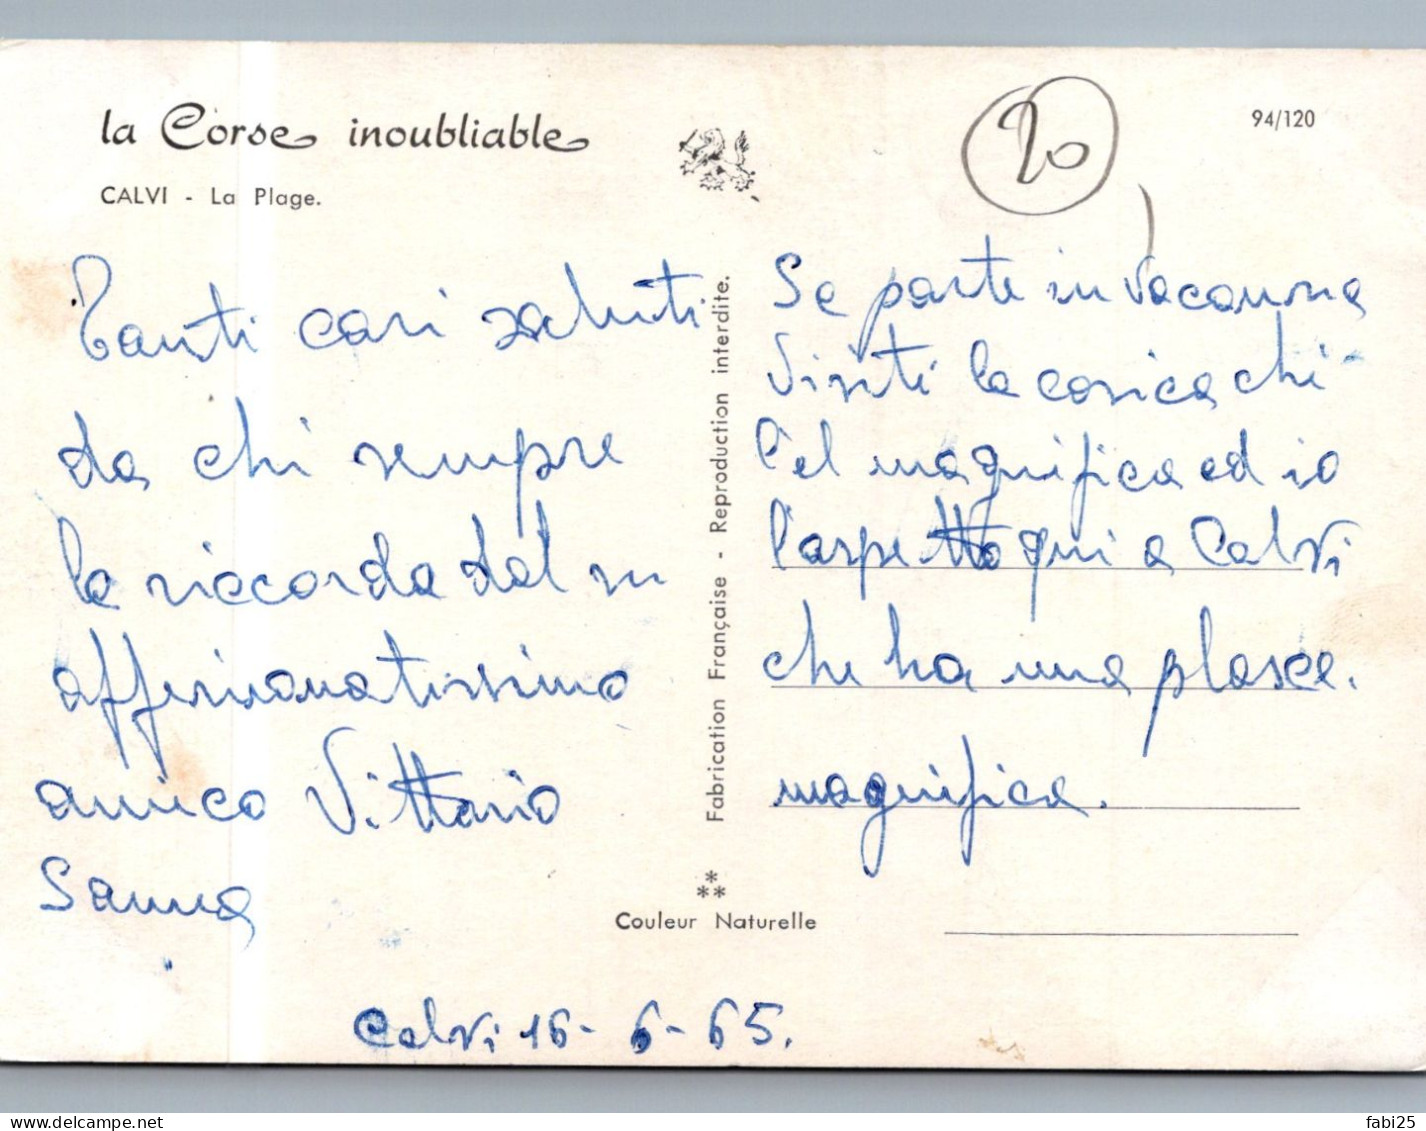 la Corse inoubliable
CALVI - La Plage.
94/120
20
Tanti cari saluti
da chi sempre
la riccorda dal su
affesionatissimo
amico Vittorio
Sanna
Se parte in vacansa
Visiti la corsica chi
magnifica ed io
l'aspetto qui a Calvi
che ha una
magnifica.
Calvi 16-6-65.
Fabrication Française - Reproduction interdite.
Couleur Naturelle
fabi25